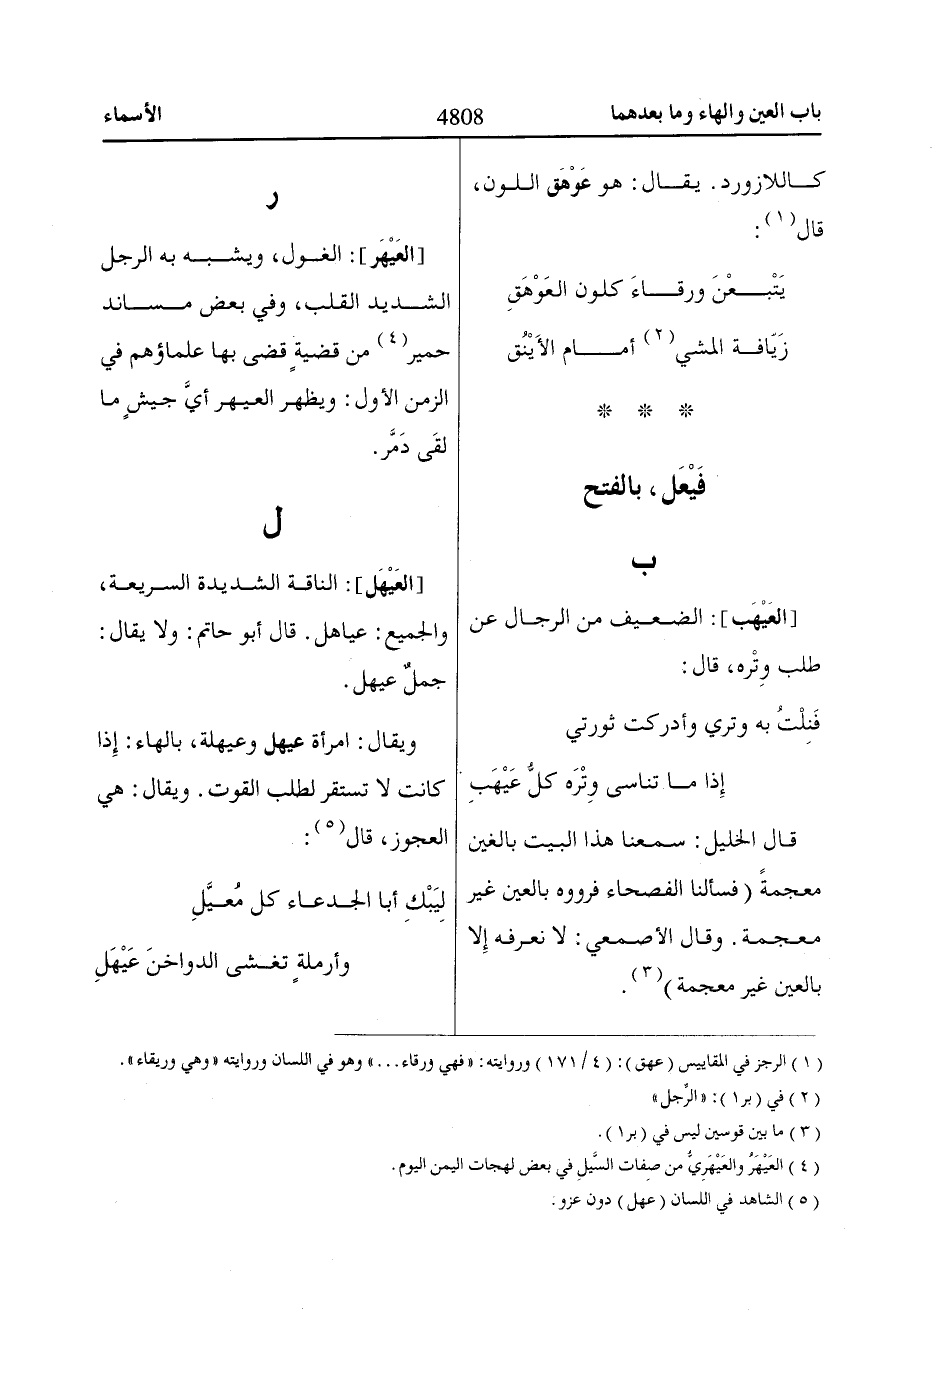 باب العين والهاء وما بعدهما
4808
الأسماء
كاللازورد. يقال: هو عَوْهَق اللون،
قال(١):
يَتْبعْنَ ورقاءَ كلون العَوْهَقِ
زيَافة المشي(٢) أمام الأَيْنُق
* * *
فَيْعَل، بالفتح
ب
[العَيْهَب]: الضعيف من الرجال عن
طلب وِتْره، قال:
فَنِلْتُ به وتري وأدركت ثورتي
إذا ما تناسى وِتْرَه كلُّ عَيْهَبِ
قال الخليل: سمعنا هذا البيت بالغين
معجمةً (فسألنا الفصحاء فرووه بالعين غير
معجمة. وقال الأصمعي: لا نعرفه إلا
بالعين غير معجمة)(٣).
ر
[العَيْهَر]: الغول، ويشبه به الرجل
الشديد القلب، وفي بعض مساند
حمير(٤) من قضيةٍ قضى بها علماؤهم في
الزمن الأول: ويظهر العيهر أيَّ جيشٍ ما
لقَى دَمَّر.
ل
[العَيْهَل]: الناقة الشديدة السريعة،
والجميع: عياهل. قال أبو حاتم: ولا يقال:
جملٌ عيهل.
ويقال: امرأة عيهل وعيهلة، بالهاء: إذا
كانت لا تستقر لطلب القوت. ويقال: هي
العجوز، قال(٥):
لِيَبْكِ أبا الجدعاء كل مُعيَّلِ
وأرملةٍ تغشى الدواخنَ عَيْهَلِ
(١) الرجز في المقاييس (عهق): (٤/ ١٧١) وروايته: «فهي ورقاء...» وهو في اللسان وروايته «وهي وريقاء».
(٢) في (بر١): «الرِّجل»
(٣) ما بين قوسين ليس في (بر١).
(٤) العَيْهَرُ والعَيْهَرِيُّ من صفات السَّيل في بعض لهجات اليمن اليوم.
(٥) الشاهد في اللسان (عهل) دون عزو.